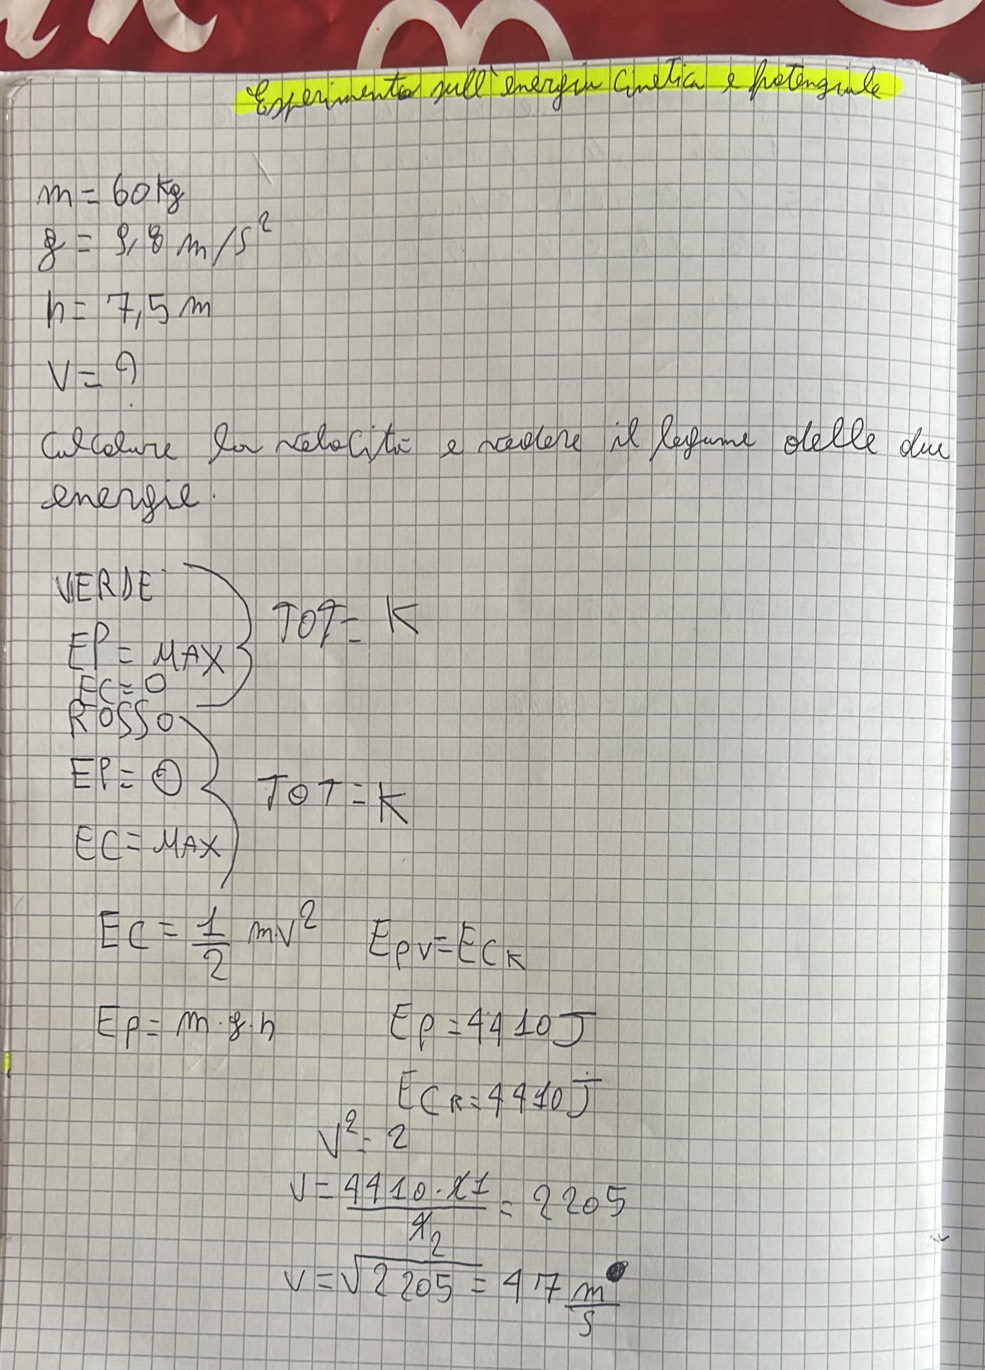 Esperimento sull'energia cinetica e potenziale
m = 60 kg
g = 9,8 m/s²
h = 7,5 m
V = ?
Calcolare la velocità e vedere il legame delle due
energie.
VERDE
TOT = K
EP = MAX
EC = 0
ROSSO
EP = 0
TOT = K
EC = MAX
EC = 1/2 mv² EPV = ECR
Ep = m·g·h Ep = 4410 J
ECR = 4410 J
V² = 2
V = 4410 · /2 = 2205
V = √2205 = 47 m/s